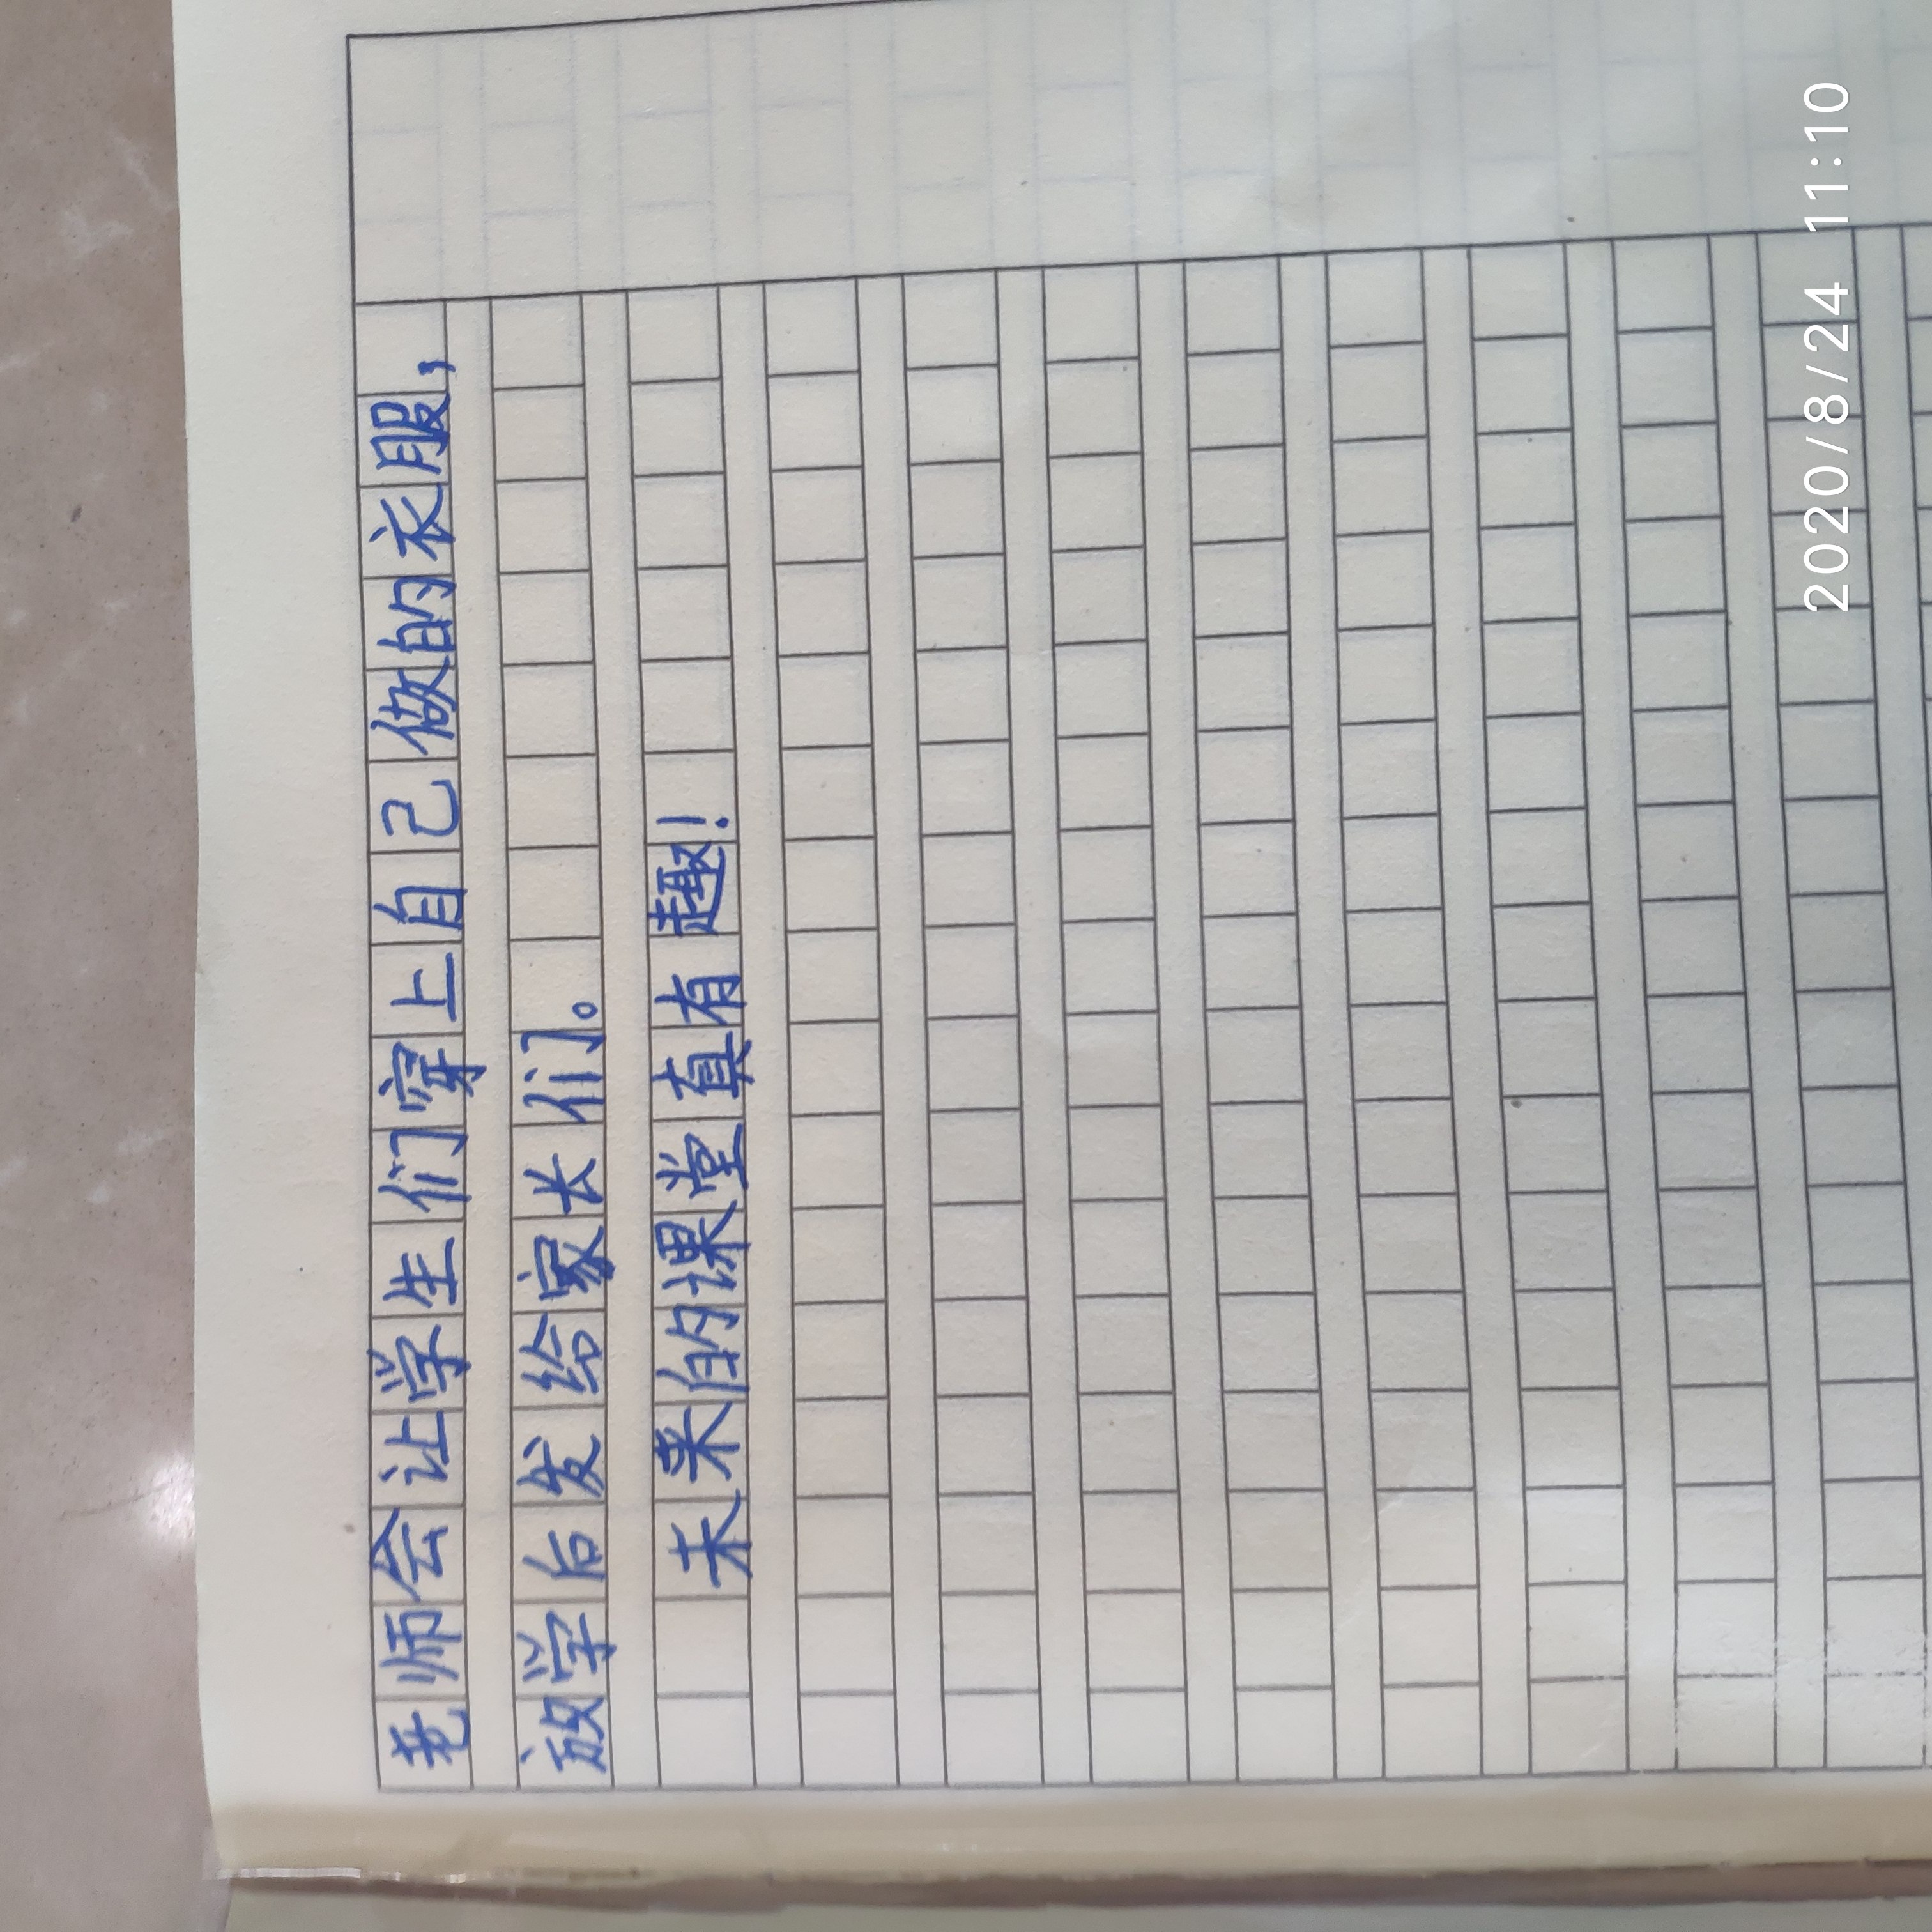 老师会让学生们穿上自己做的衣服，
放学后发给家长们。
未来的课堂真有趣！
2020/8/24 11:10